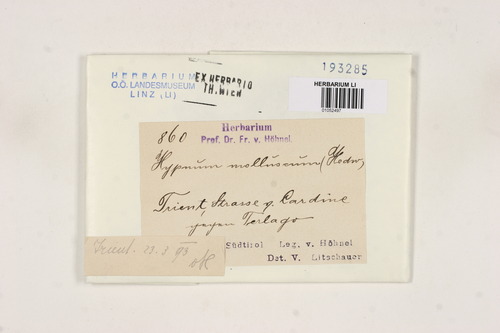 193285
HERBARIUM
O.Ö. LANDESMUSEUM
LINZ (LI)
EX HERBARIO
TH. WIEN
HERBARIUM LI
01052497
860
Herbarium
Prof. Dr. Fr. v. Höhnel
Hypnum molluscum (Hedw)
Trient, Strasse v. Cardine
gegen Terlago
Südtirol Leg. v. Höhnel
Det. V. Litschauer
Trient. 23. 3 93